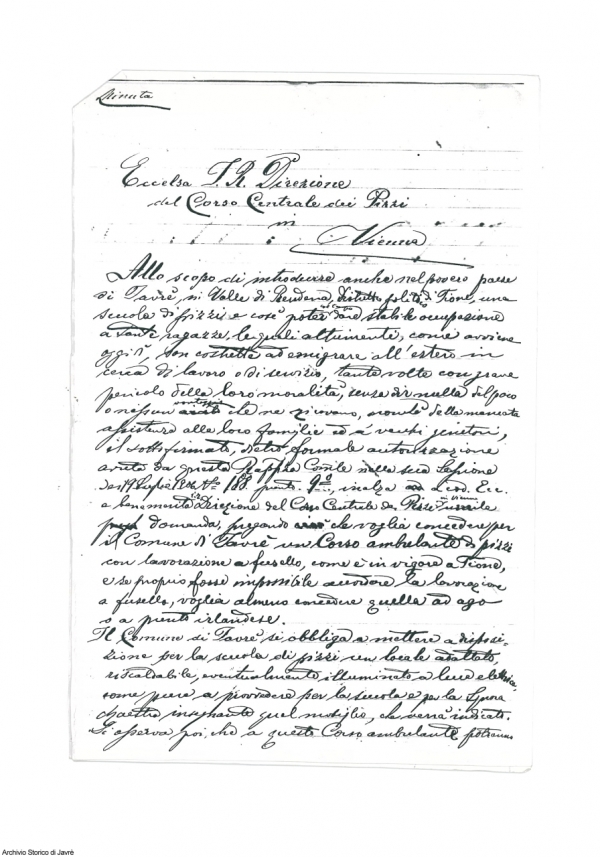 Minuta
Eccelsa I. R. Direzione
del Corso Centrale dei Pizzi
in
Vienna
Allo scopo di introdurre anche nel povero paese
di Javrè, in Valle di Rendena, distretto polit. di Tione, una
scuola di pizzi, e così poter dare stabile occupazione
a tante ragazze, le quali altrimenti, come avviene
oggidì, son costrette ad emigrare all'estero in
cerca di lavoro o di servizio, tante volte con grave
pericolo della loro moralità, senza dir nulla del poco
o nessun vantaggio che ne ricavano, nonchè della mancata
assistenza alle loro famiglie ed a' vecchi genitori,
il sottofirmato, dietro formale autorizzazione
avuta da questa Rappza Comle nella sua Sessione
del 19 N° 188 punto 9°, inalza a Cod. Ecc.
e benemerita Direzione del Corso Centrale dei Pizzi
domanda, pregando che voglia concedere per
il Comune di Javrè un Corso ambulante di pizzi
con lavorazione a fusello, come è in vigore a Tione,
e se proprio fosse impossibile accordare la lavorazione
a fusello, voglia almeno concedere quella ad ago
o a punto irlandese.
Il Comune di Javrè si obbliga a mettere a disposi-
zione per la scuola di pizzi un locale adattato,
riscaldabile, eventualmente illuminato a luce elettrica,
come pure a provvedere per la scuola e per la Signora
Maestra insegnante quel mobiglio, che verrà indicato.
Si osserva poi, che a questo Corso ambulante potranno
Archivio Storico di Javrè